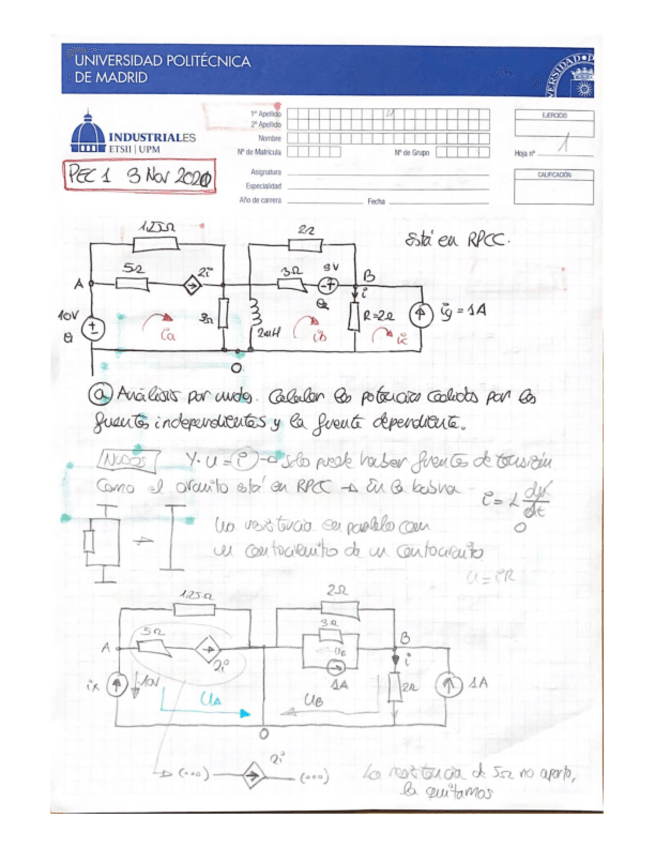 UNIVERSIDAD POLITÉCNICA
DE MADRID
INDUSTRIALES
ETSII | UPM
1º Apellido
2º Apellido
Nombre
Nº de Matrícula
Nº de Grupo
Asignatura
Especialidad
Año de carrera
Fecha
EJERCICIO
1
Hoja nº
CALIFICACIÓN
PEC 1 3 Nov 2020
1.25Ω
2Ω
Está en RPCC.
A
5Ω
2i
3Ω
9V
B
i
10V
3Ω
2mH
R=2Ω
ig = 1A
ia
ib
ic
0
a) Análisis por nudos. Calcular las potencias cedidas por las
fuentes independientes y la fuente dependiente.
NUDOS Y·u = i → solo puede haber fuentes de tensión
Como el circuito está en RPCC → En la bobina
0
Una resistencia en paralelo con
un cortocircuito es un cortocircuito
u=iR
1.25Ω
2Ω
A
5Ω
2i
3Ω
B
i
ix
10V
UA
UB
1A
2Ω
1A
0
(...)
2i
(...)
La resistencia de 5Ω no aporta,
la quitamos